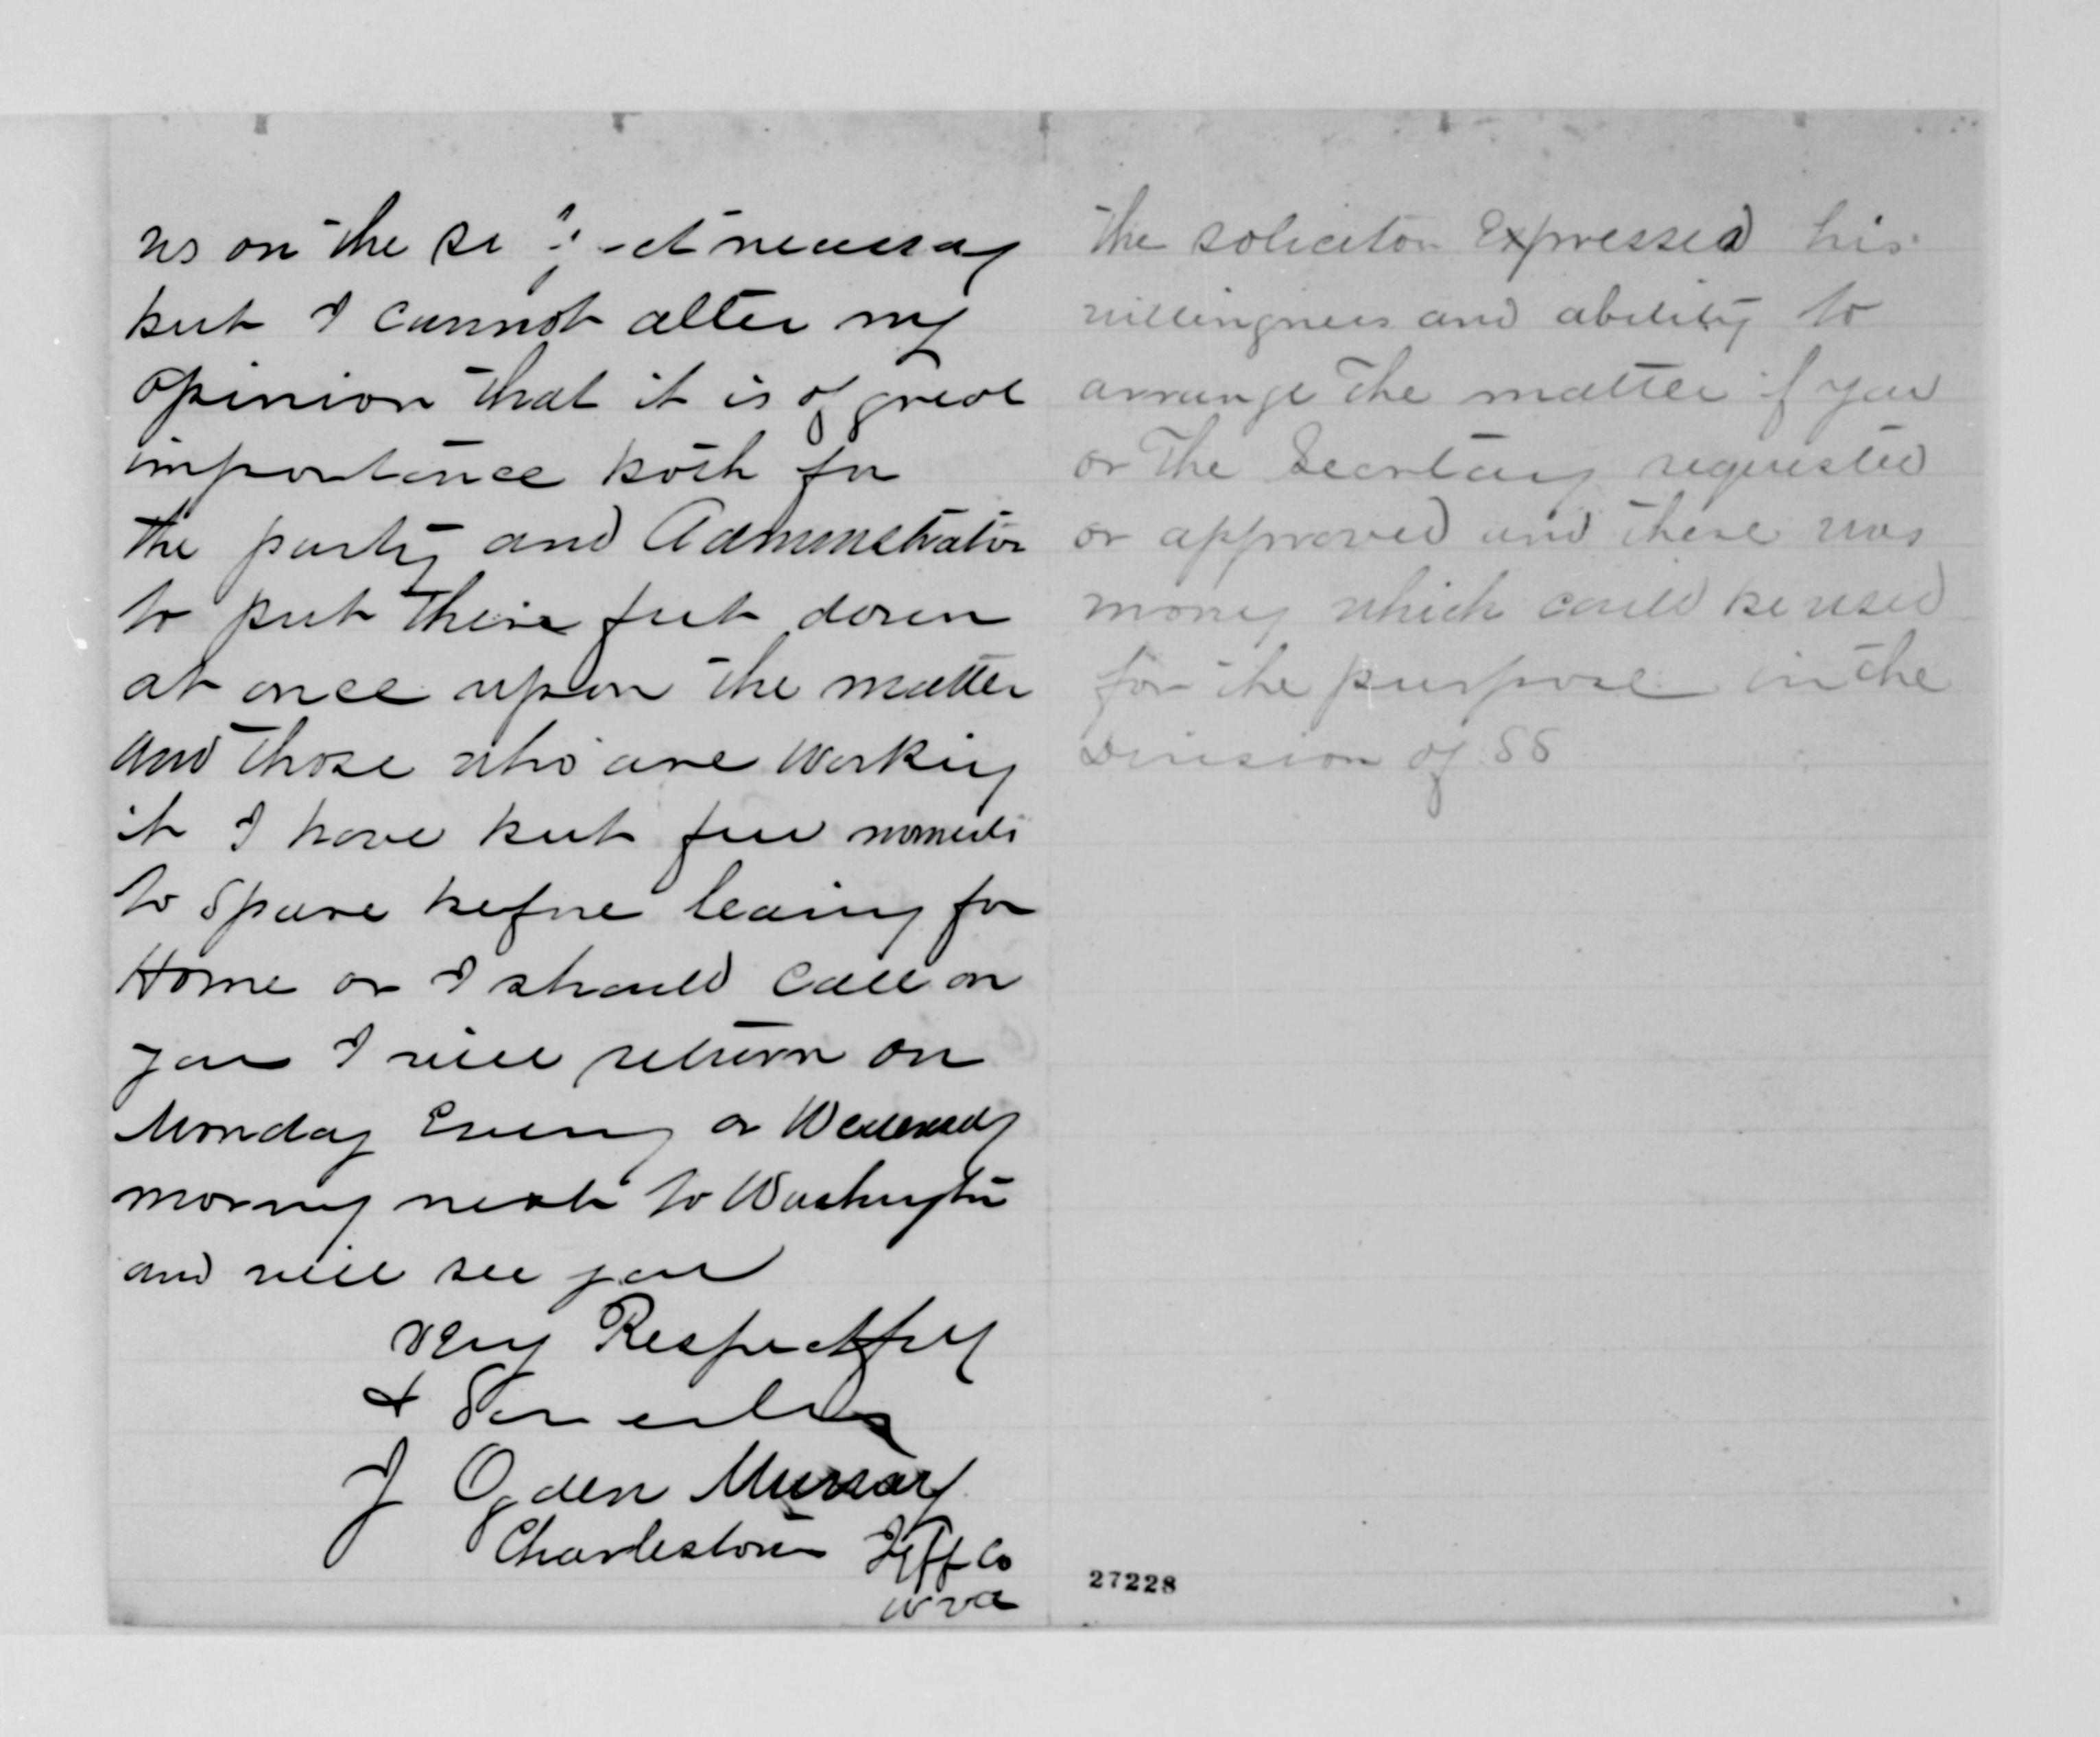 us on the subject necessary
but I cannot alter my
opinion that it is of great
importance both for
the party and Adminstration
to put their feet down
at once upon the matter
and those who are working
it I have but few moments
to spare before leaving for
Home or I should call on
you I will return on
Monday Evening or Wednesday
morning next to Washington
and will see you
very Respectfully
& Sincerely
J Ogden Murray
Charlestown Jeff Co
W Va
The solicitor Expressed his
willingness and ability to
arrange the matter if you
or The Secretary requested
or approved and there was
money which could be used
for the purpose in the
Division of SS
27228